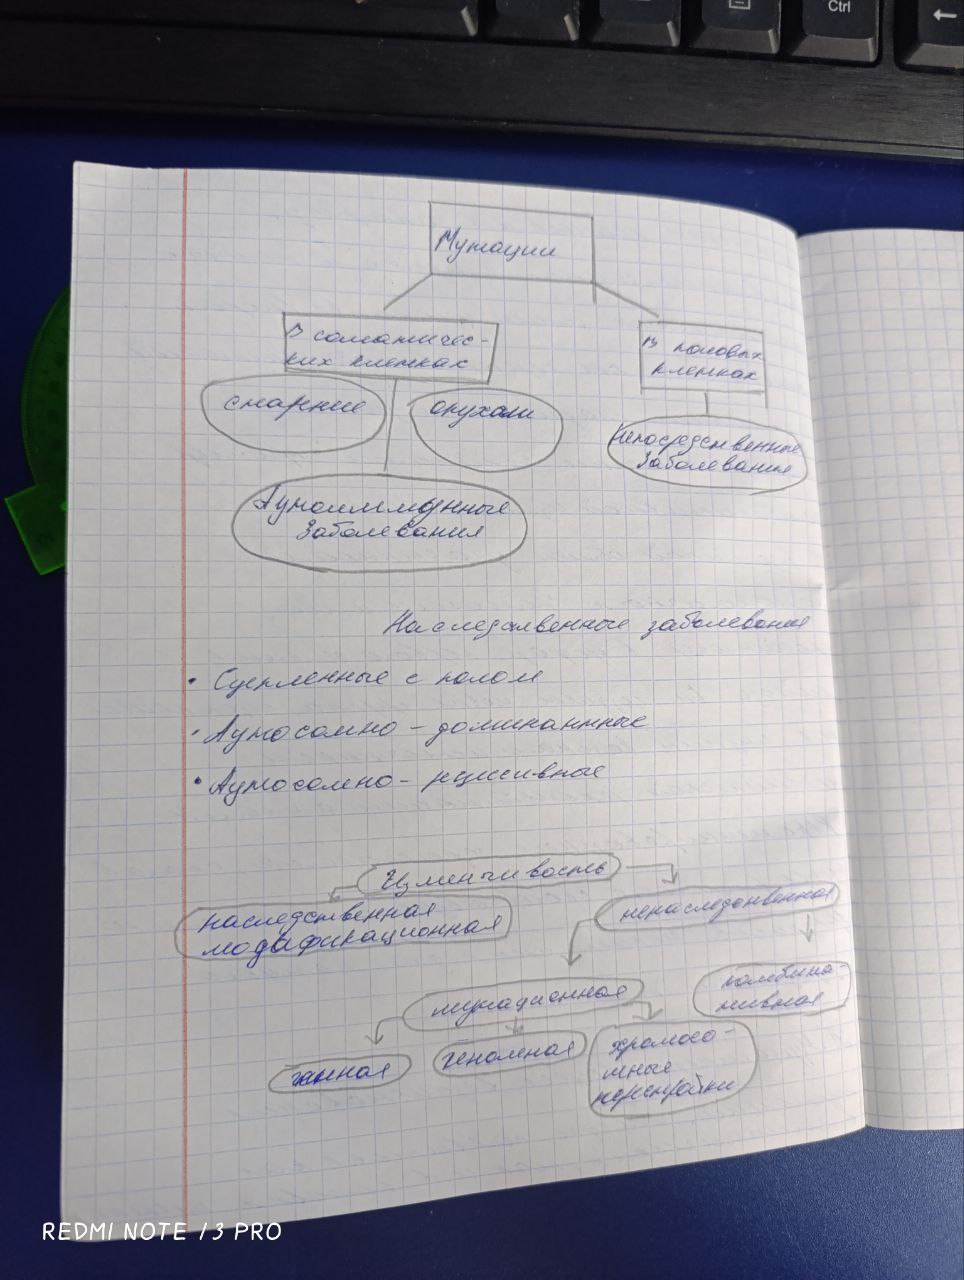 Ctrl
←
Мутации
В соматичес-
ких клетках
В половых
клетках
старение
опухоли
Непосредственные
заболевания
Аутоиммунные
заболевания
Наследственные заболевания
• Сцепленные с полом
• Аутосомно - доминантные
• Аутосомно - рецессивные
Изменчивость
наследственная
модификационная
ненаследственная
мутационная
комбина-
тивная
генная
геномная
хромосо-
мные
перестройки
REDMI NOTE 13 PRO